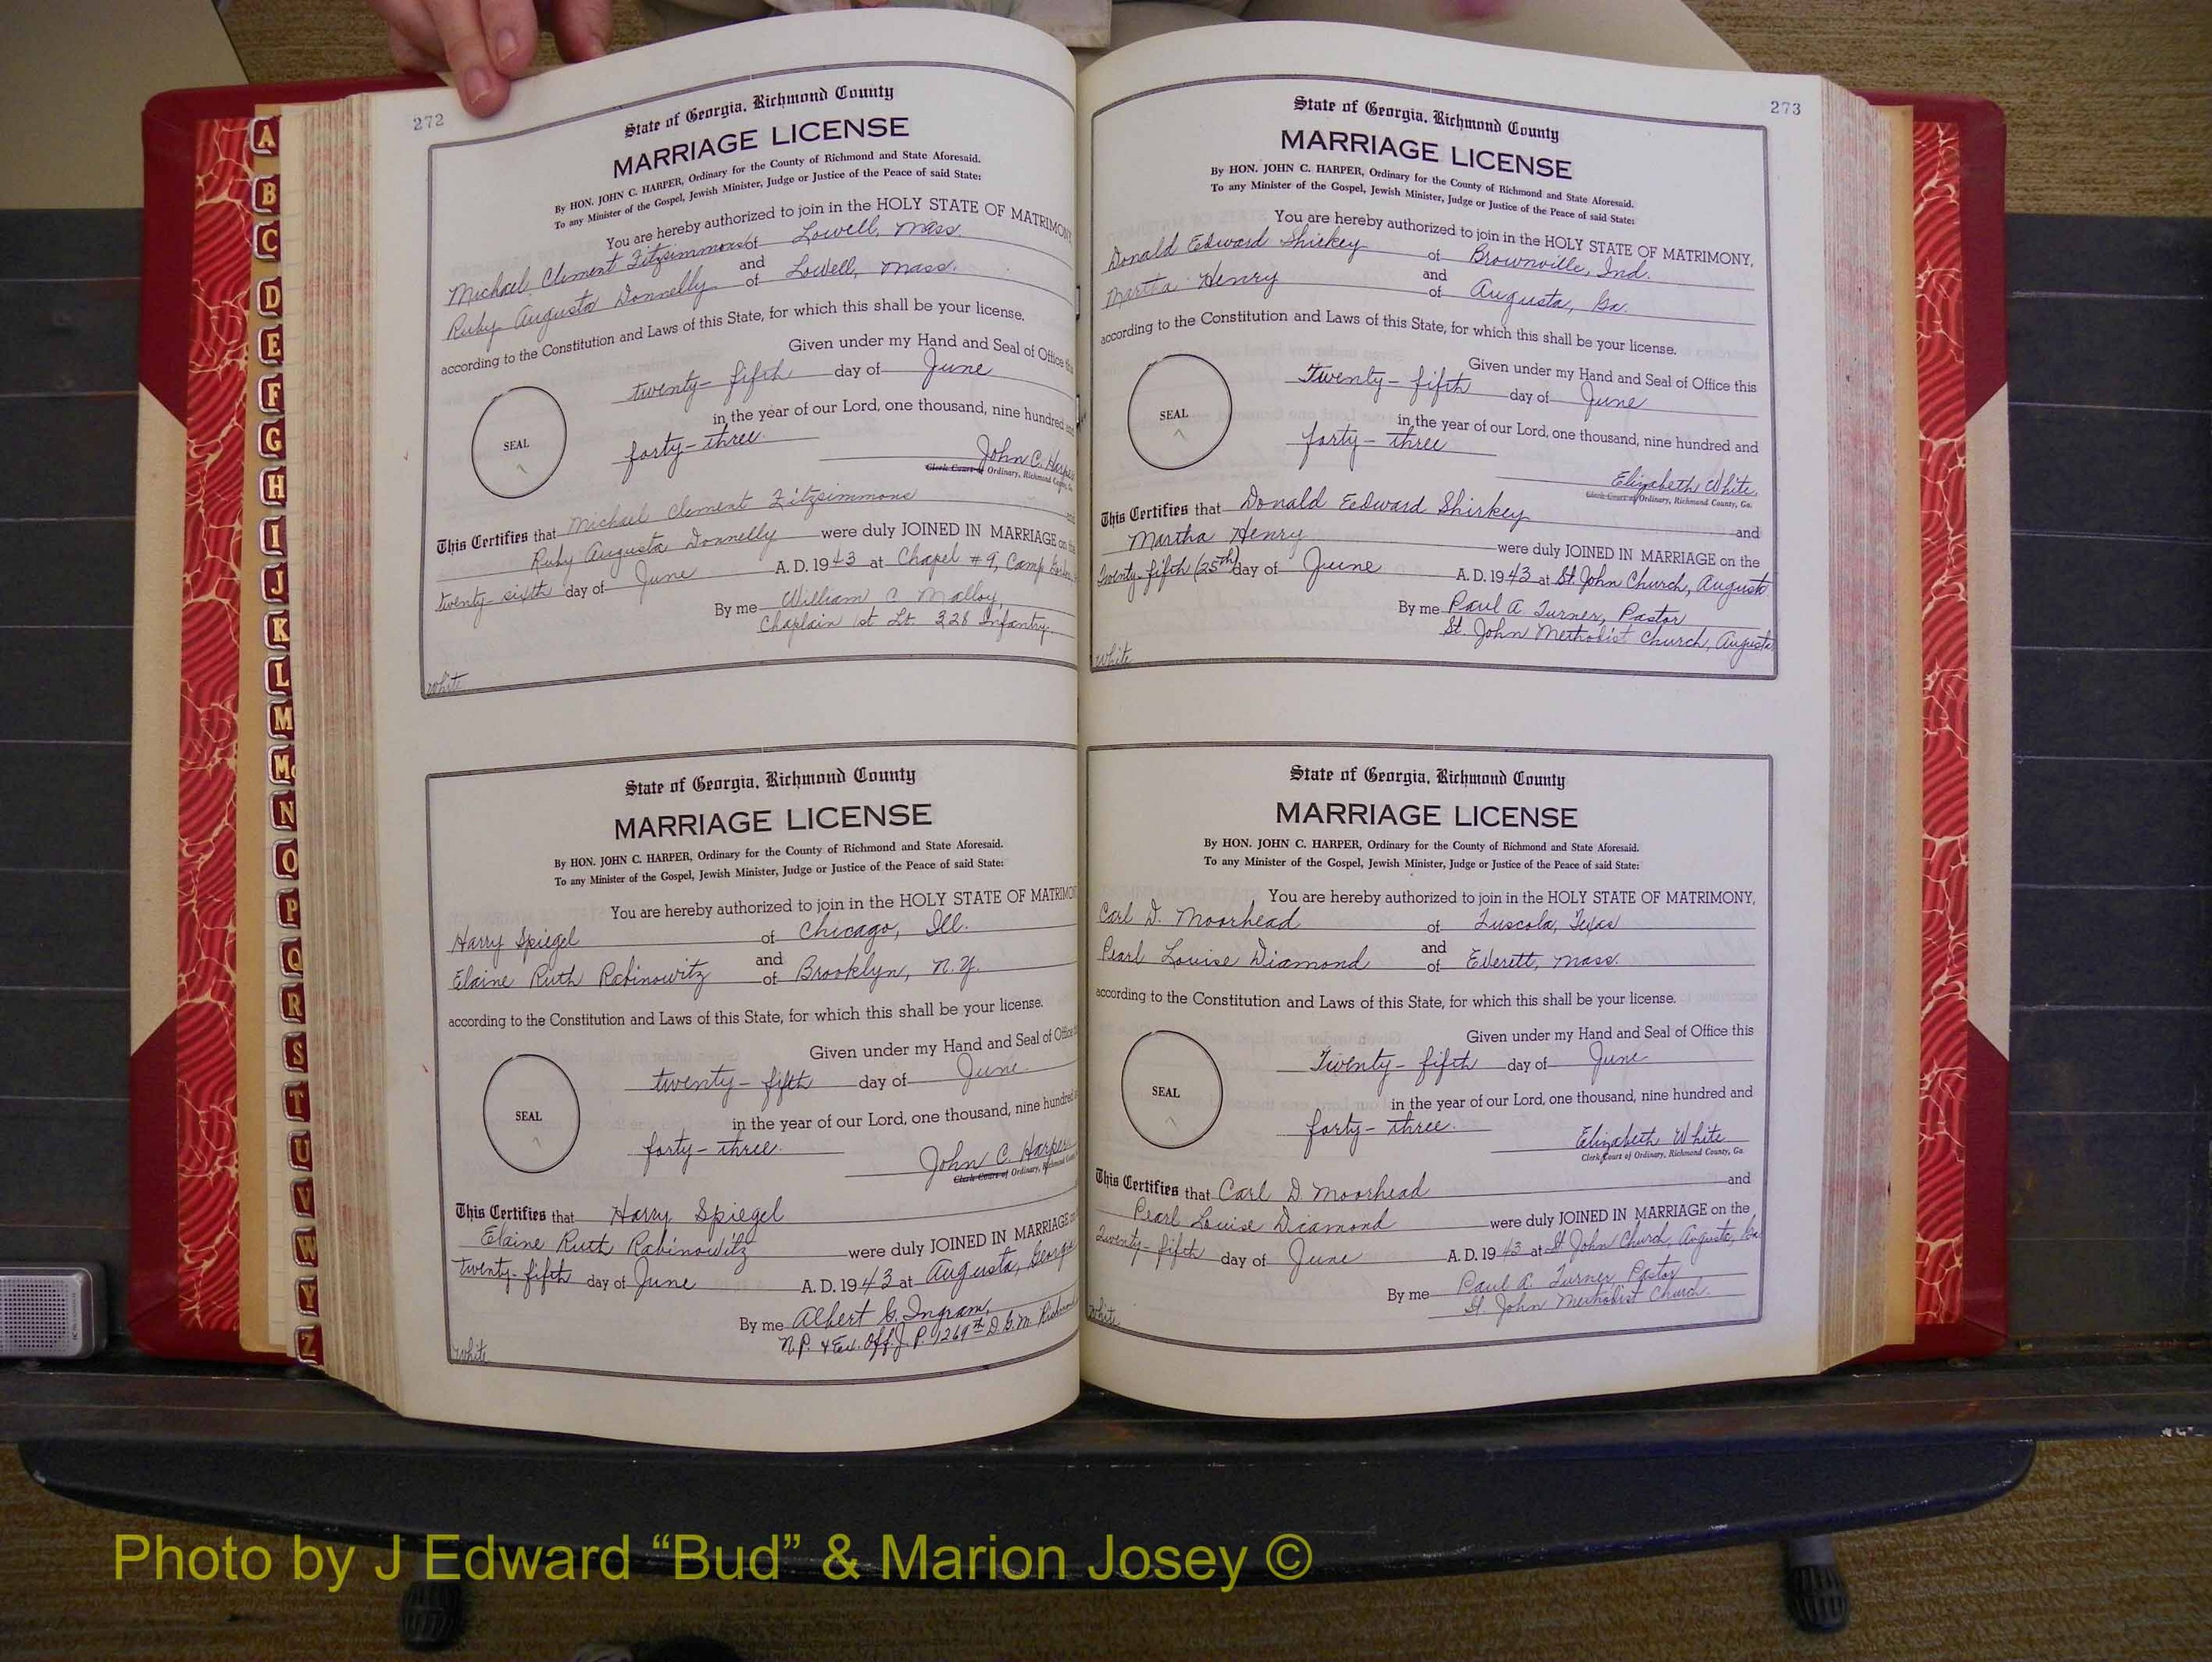 272
State of Georgia, Richmond County
MARRIAGE LICENSE
By HON. JOHN C. HARPER, Ordinary for the County of Richmond and State Aforesaid.
To any Minister of the Gospel, Jewish Minister, Judge or Justice of the Peace of said State:
You are hereby authorized to join in the HOLY STATE OF MATRIMONY
Michael Clement Fitzsimmons of Lowell, Mass.
and
Ruby Augusta Donnelly of Lowell, Mass.
according to the Constitution and Laws of this State, for which this shall be your license.
Given under my Hand and Seal of Office
twenty-fifth day of June
in the year of our Lord, one thousand, nine hundred and
SEAL
forty-three.
John C. Harper
Clerk Court of Ordinary, Richmond County, Ga.
This Certifies that Michael Clement Fitzsimmons and
Ruby Augusta Donnelly were duly JOINED IN MARRIAGE on the
twenty sixth day of June A. D. 1943 at Chapel #9, Camp
By me William C Malloy,
Chaplain 1st Lt. 328 Infantry.
White
State of Georgia, Richmond County
MARRIAGE LICENSE
By HON. JOHN C. HARPER, Ordinary for the County of Richmond and State Aforesaid.
To any Minister of the Gospel, Jewish Minister, Judge or Justice of the Peace of said State:
You are hereby authorized to join in the HOLY STATE OF MATRIMON
Harry Spiegel of Chicago, Ill.
and
Elaine Ruth Rabinowitz of Brooklyn, N.Y.
according to the Constitution and Laws of this State, for which this shall be your license.
Given under my Hand and Seal of Office
twenty-fifth day of June.
SEAL
in the year of our Lord, one thousand, nine hundred
forty-three.
John C. Harper
Clerk Court of Ordinary, Richmond
This Certifies that Harry Spiegel
Elaine Ruth Rabinowitz were duly JOINED IN MARRIAGE
twenty-fifth day of June A. D. 1943 at Augusta, Georgia
By me Albert G. Ingram,
N.P. & Ex. Off. J.P. 1269th D.G.M.
White
273
State of Georgia, Richmond County
MARRIAGE LICENSE
By HON. JOHN C. HARPER, Ordinary for the County of Richmond and State Aforesaid.
To any Minister of the Gospel, Jewish Minister, Judge or Justice of the Peace of said State:
You are hereby authorized to join in the HOLY STATE OF MATRIMONY,
Donald Edward Shirkey of Brownville, Ind.
and
Martha Henry of Augusta, Ga.
according to the Constitution and Laws of this State, for which this shall be your license.
Given under my Hand and Seal of Office this
Twenty-fifth day of June
SEAL
in the year of our Lord, one thousand, nine hundred and
forty-three
Elizabeth White.
Clerk Court of Ordinary, Richmond County, Ga.
This Certifies that Donald Edward Shirkey and
Martha Henry were duly JOINED IN MARRIAGE on the
Twenty-fifth (25th) day of June A. D. 1943 at St. John Church, Augusta
By me Paul A. Turner, Pastor
St. John Methodist Church, Augusta
White
State of Georgia, Richmond County
MARRIAGE LICENSE
By HON. JOHN C. HARPER, Ordinary for the County of Richmond and State Aforesaid.
To any Minister of the Gospel, Jewish Minister, Judge or Justice of the Peace of said State:
You are hereby authorized to join in the HOLY STATE OF MATRIMONY,
Carl D. Moorhead of Tuscola, Texas
and
Pearl Louise Diamond of Everett, Mass.
according to the Constitution and Laws of this State, for which this shall be your license.
Given under my Hand and Seal of Office this
Twenty-fifth day of June
SEAL
in the year of our Lord, one thousand, nine hundred and
forty-three.
Elizabeth White
Clerk Court of Ordinary, Richmond County, Ga.
This Certifies that Carl D Moorhead and
Pearl Louise Diamond were duly JOINED IN MARRIAGE on the
Twenty-fifth day of June A. D. 1943 at St John Church, Augusta, Ga
By me Paul A. Turner, Pastor
St. John Methodist Church.
White
A
B
C
D
E
F
G
H
I
J
K
L
M
Mc
N
O
P
Q
R
S
T
U
V
W
Y
Z
Photo by J Edward “Bud” & Marion Josey ©